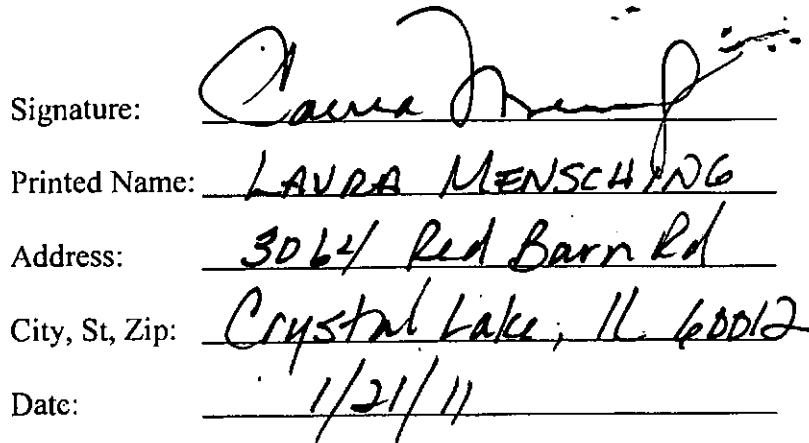 Signature: Laura Mensching
Printed Name: LAURA MENSCHING
Address: 3064 Red Barn Rd
City, St, Zip: Crystal Lake, IL 60012
Date: 1/21/11